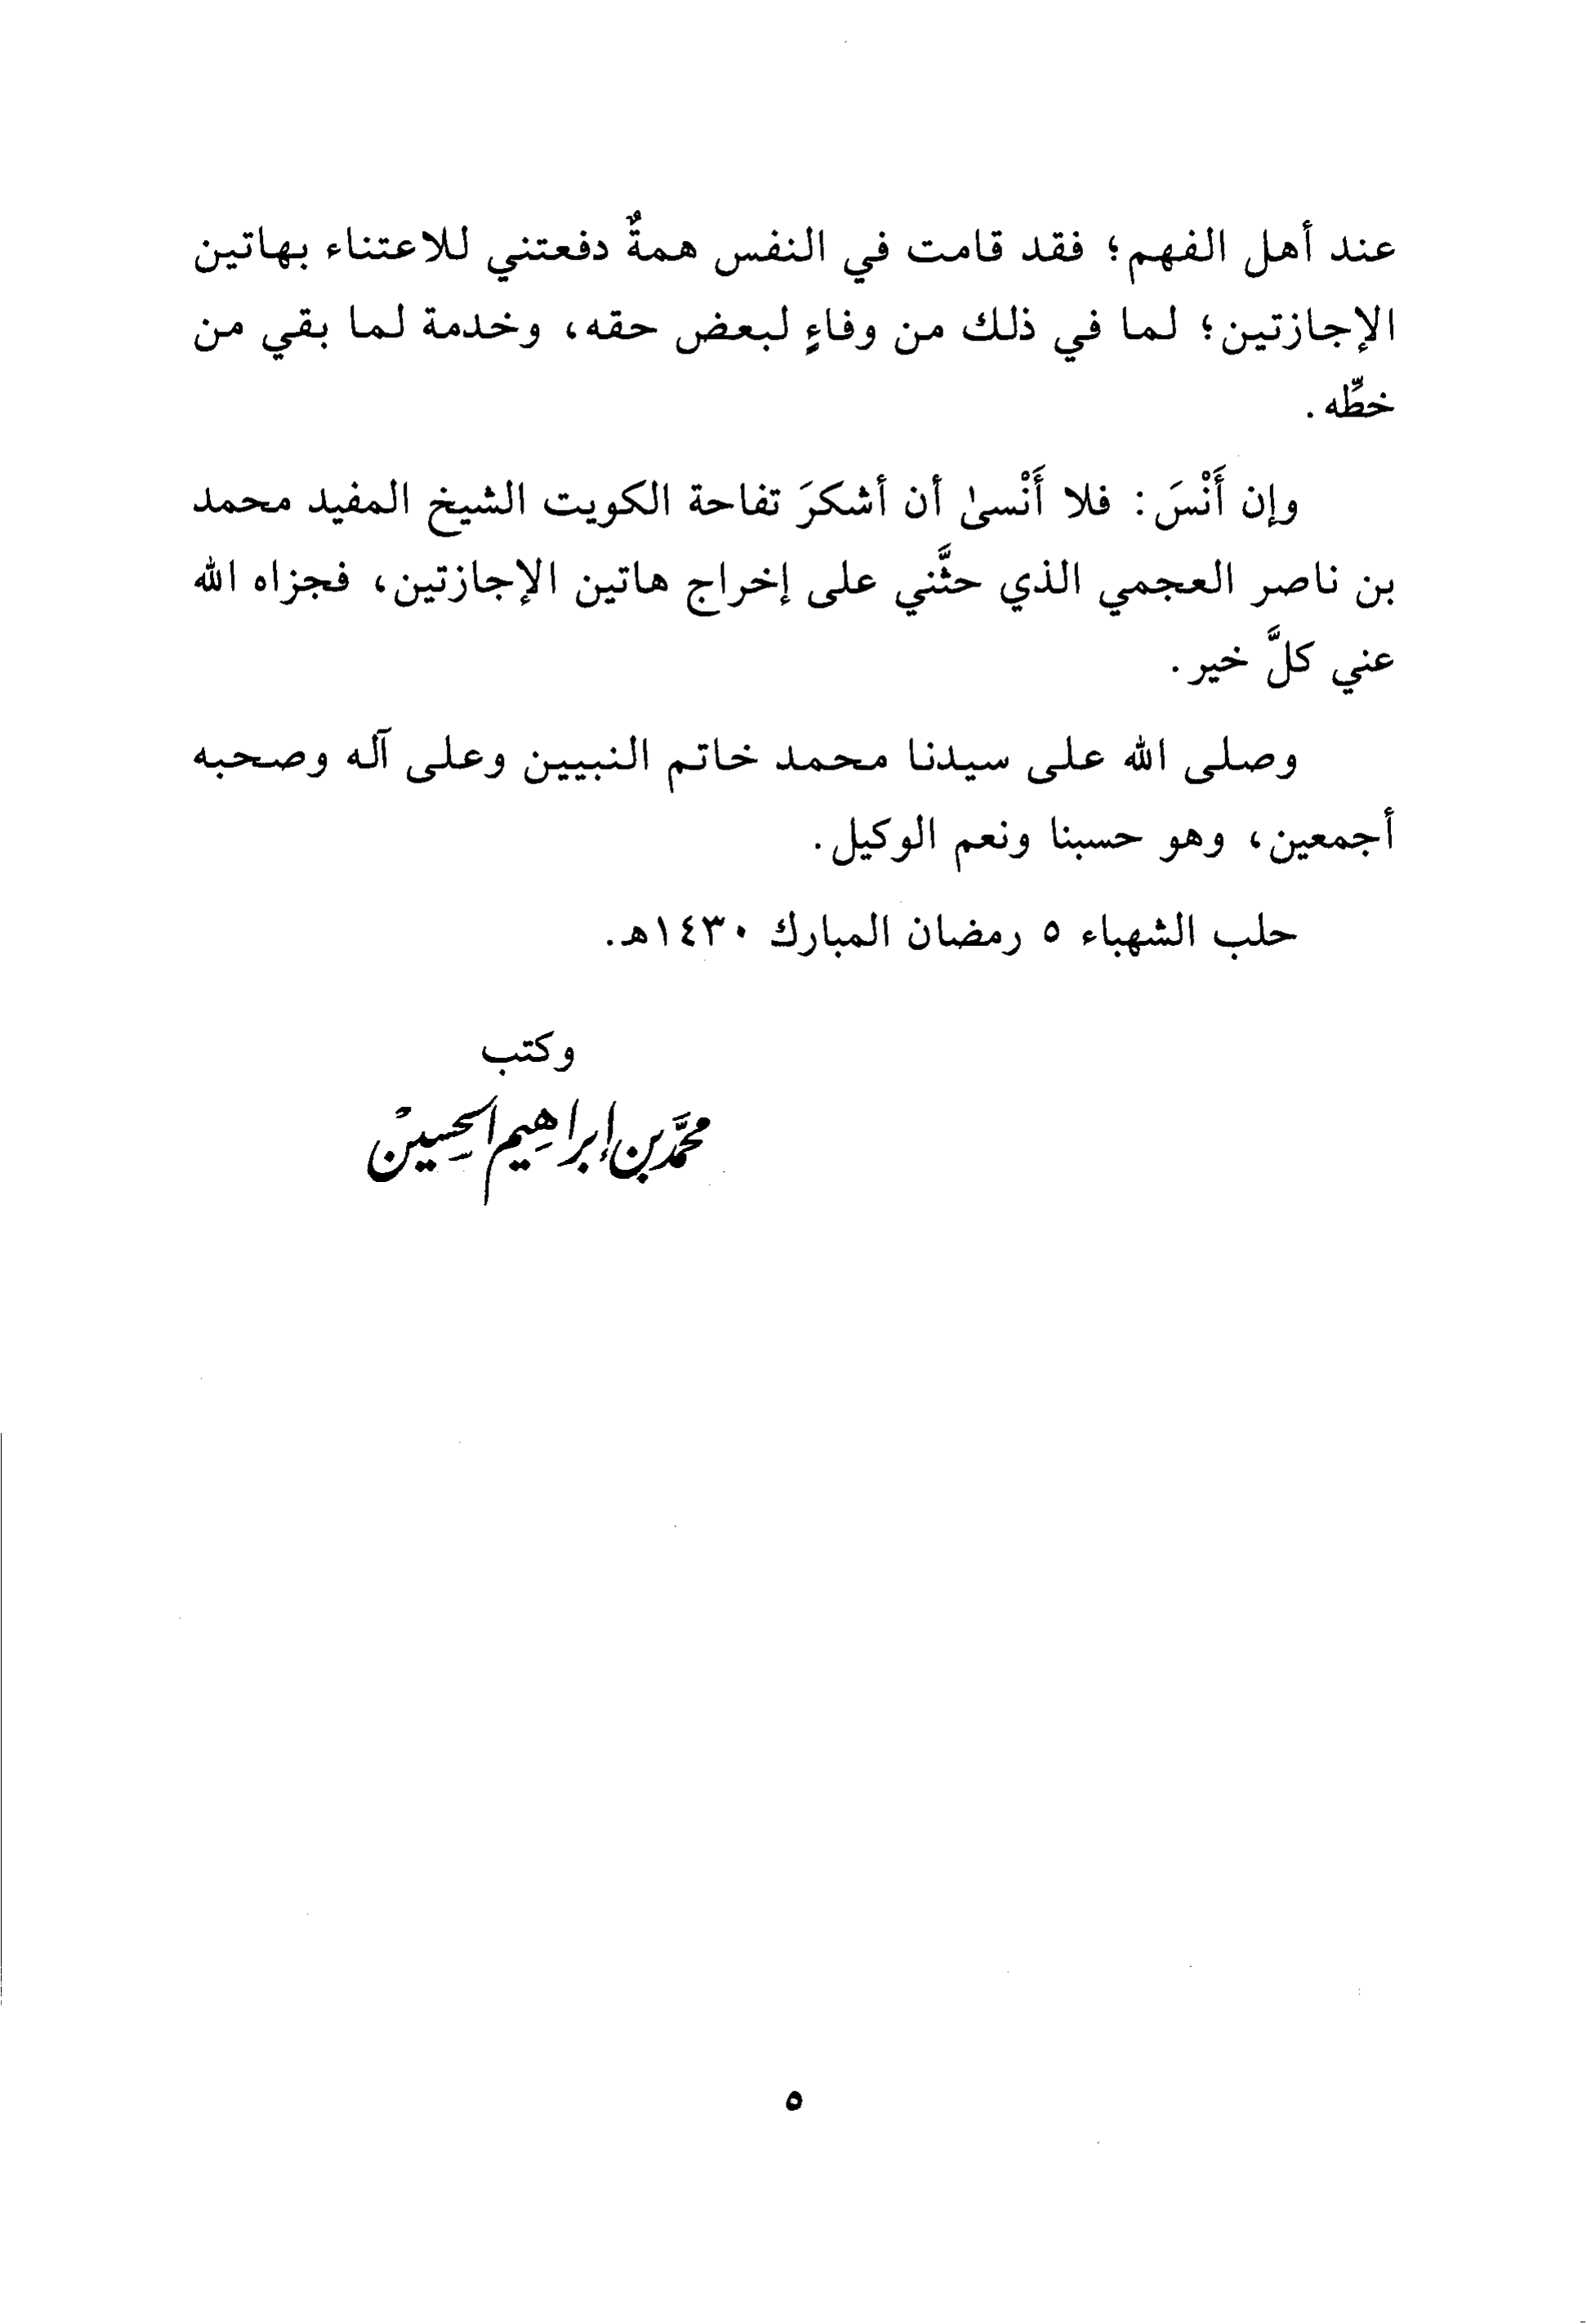 عند أهل الفهم؛ فقد قامت في النفس همةٌ دفعتني للاعتناء بهاتين
الإجازتين؛ لما في ذلك من وفاءٍ لبعض حقه، وخدمة لما بقي من
خطِّه.
وإن أَنْسَ: فلا أَنْسىٰ أن أشكرَ تفاحة الكويت الشيخ المفيد محمد
بن ناصر العجمي الذي حثَّني على إخراج هاتين الإجازتين، فجزاه الله
عني كلَّ خير.
وصلى الله على سيدنا محمد خاتم النبيين وعلى آله وصحبه
أجمعين، وهو حسبنا ونعم الوكيل.
حلب الشهباء ٥ رمضان المبارك ١٤٣٠هـ.
وكتب
محمَّد بن إبراهيم الحسين
٥